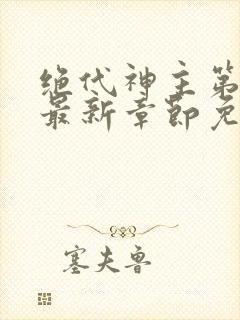 绝代神主第
最新章节免
塞夫鲁